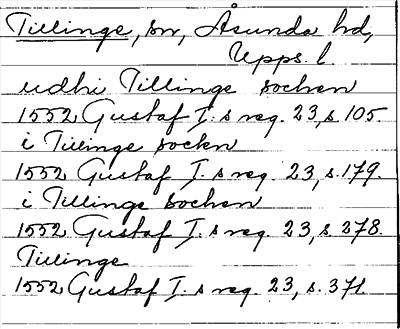 Tillinge, sn, Åsunda hd,
Upps. l.
udhi Tillinge sochen
1552 Gustaf I. s reg. 23, s. 105.
i Tillinge sockn
1552 Gustaf I. s reg. 23, s. 179.
i Tillinge sochen
1552 Gustaf I. s reg. 23, s. 278.
Tillinge
1552 Gustaf I. s reg. 23, s. 371.